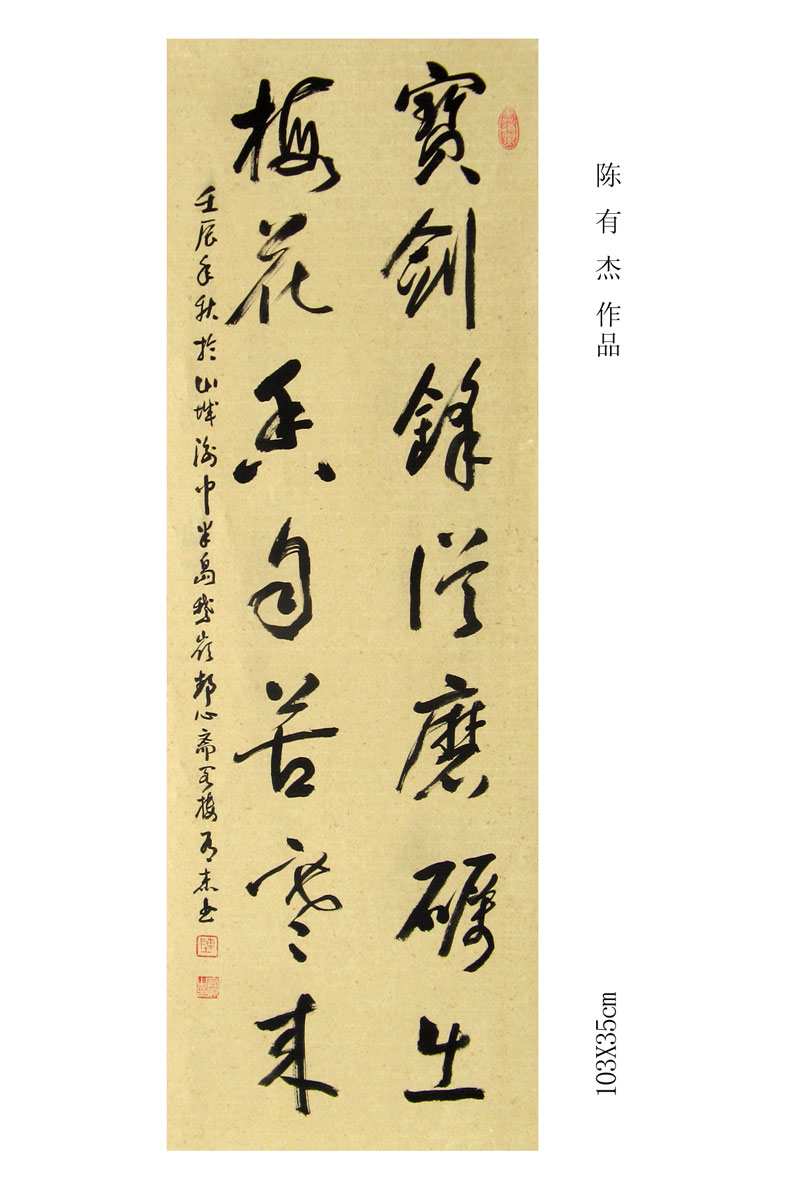 陈有杰作品
寶劍鋒從磨礪出
梅花香自苦寒来
壬辰年秋於山城渝中半島鵝嶺心齋有杰書
103X35cm